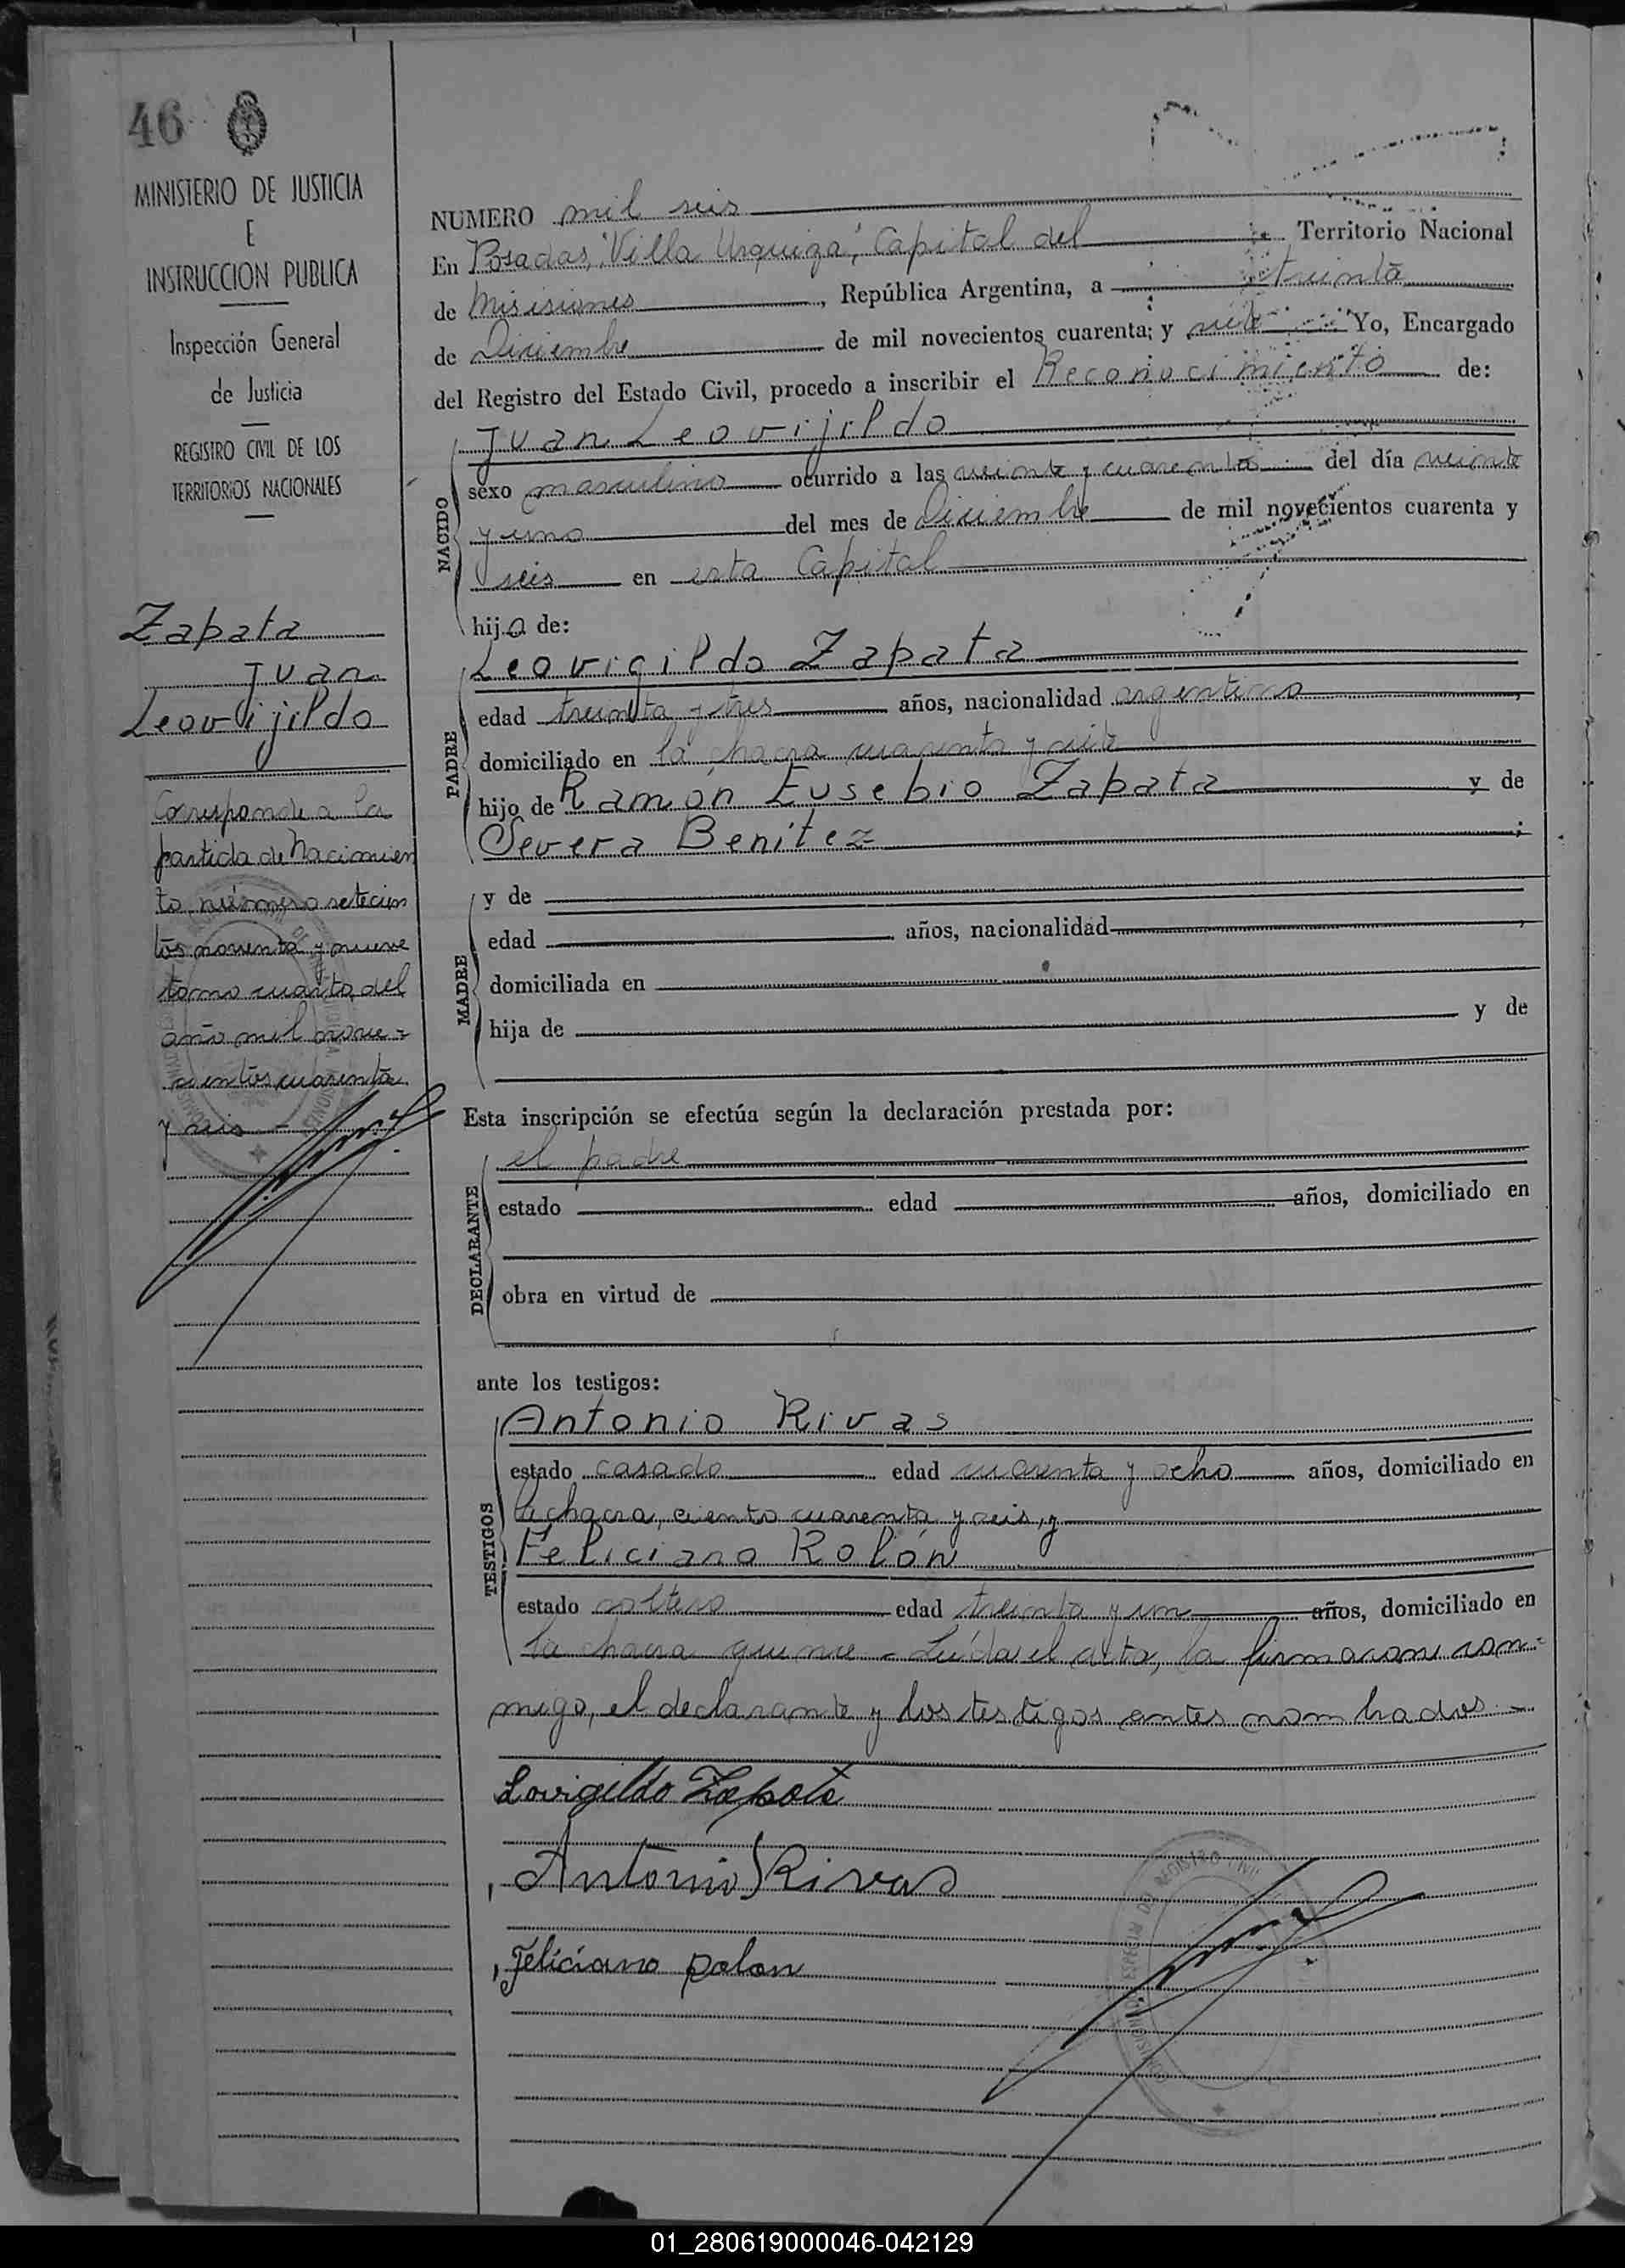 46
MINISTERIO DE JUSTICIA
E
INSTRUCCION PUBLICA
Inspección General
de Justicia
REGISTRO CIVIL DE LOS
TERRITORIOS NACIONALES
Zapata
Juan
Leovijildo
Corresponde a la
partida de Nacimien
to, número setecien
tos noventa y nueve
tomo cuarto, del
año mil nove=
cientos cuarenta
y seis -
NUMERO mil seis
En Posadas, "Villa Urquiza", Capital del Territorio Nacional
de Misisiones, República Argentina, a treinta
de Diciembre de mil novecientos cuarenta; y siete Yo, Encargado
del Registro del Estado Civil, procedo a inscribir el Reconocimiento de:
NACIDO
Juan Leovijildo
sexo masculino ocurrido a las veinte y cuarenta del día veinte
y uno del mes de Diciembre de mil novecientos cuarenta y
seis en esta Capital
hijo de:
PADRE
Leovigildo Zapata
edad treinta y tres años, nacionalidad argentino,
domiciliado en la chacra cuarenta y siete
hijo de Ramón Eusebio Zapata y de
Severa Benitez;
MADRE
y de
edad años, nacionalidad,
domiciliada en
hija de y de
Esta inscripción se efectúa según la declaración prestada por:
DECLARANTE
el padre
estado edad años, domiciliado en
obra en virtud de
ante los testigos:
TESTIGOS
Antonio Rivas
estado casado edad cuarenta y ocho años, domiciliado en
la chacra, ciento cuarenta y seis, y
Feliciano Rolón
estado soltero edad treinta y un años, domiciliado en
la chacra quince - Leída el acta, la firmaron con=
migo, el declarante y los testigos antes nombrados -
Lovigildo Zapata
Antonio Rivas
Feliciano Rolon
01_280619000046-042129